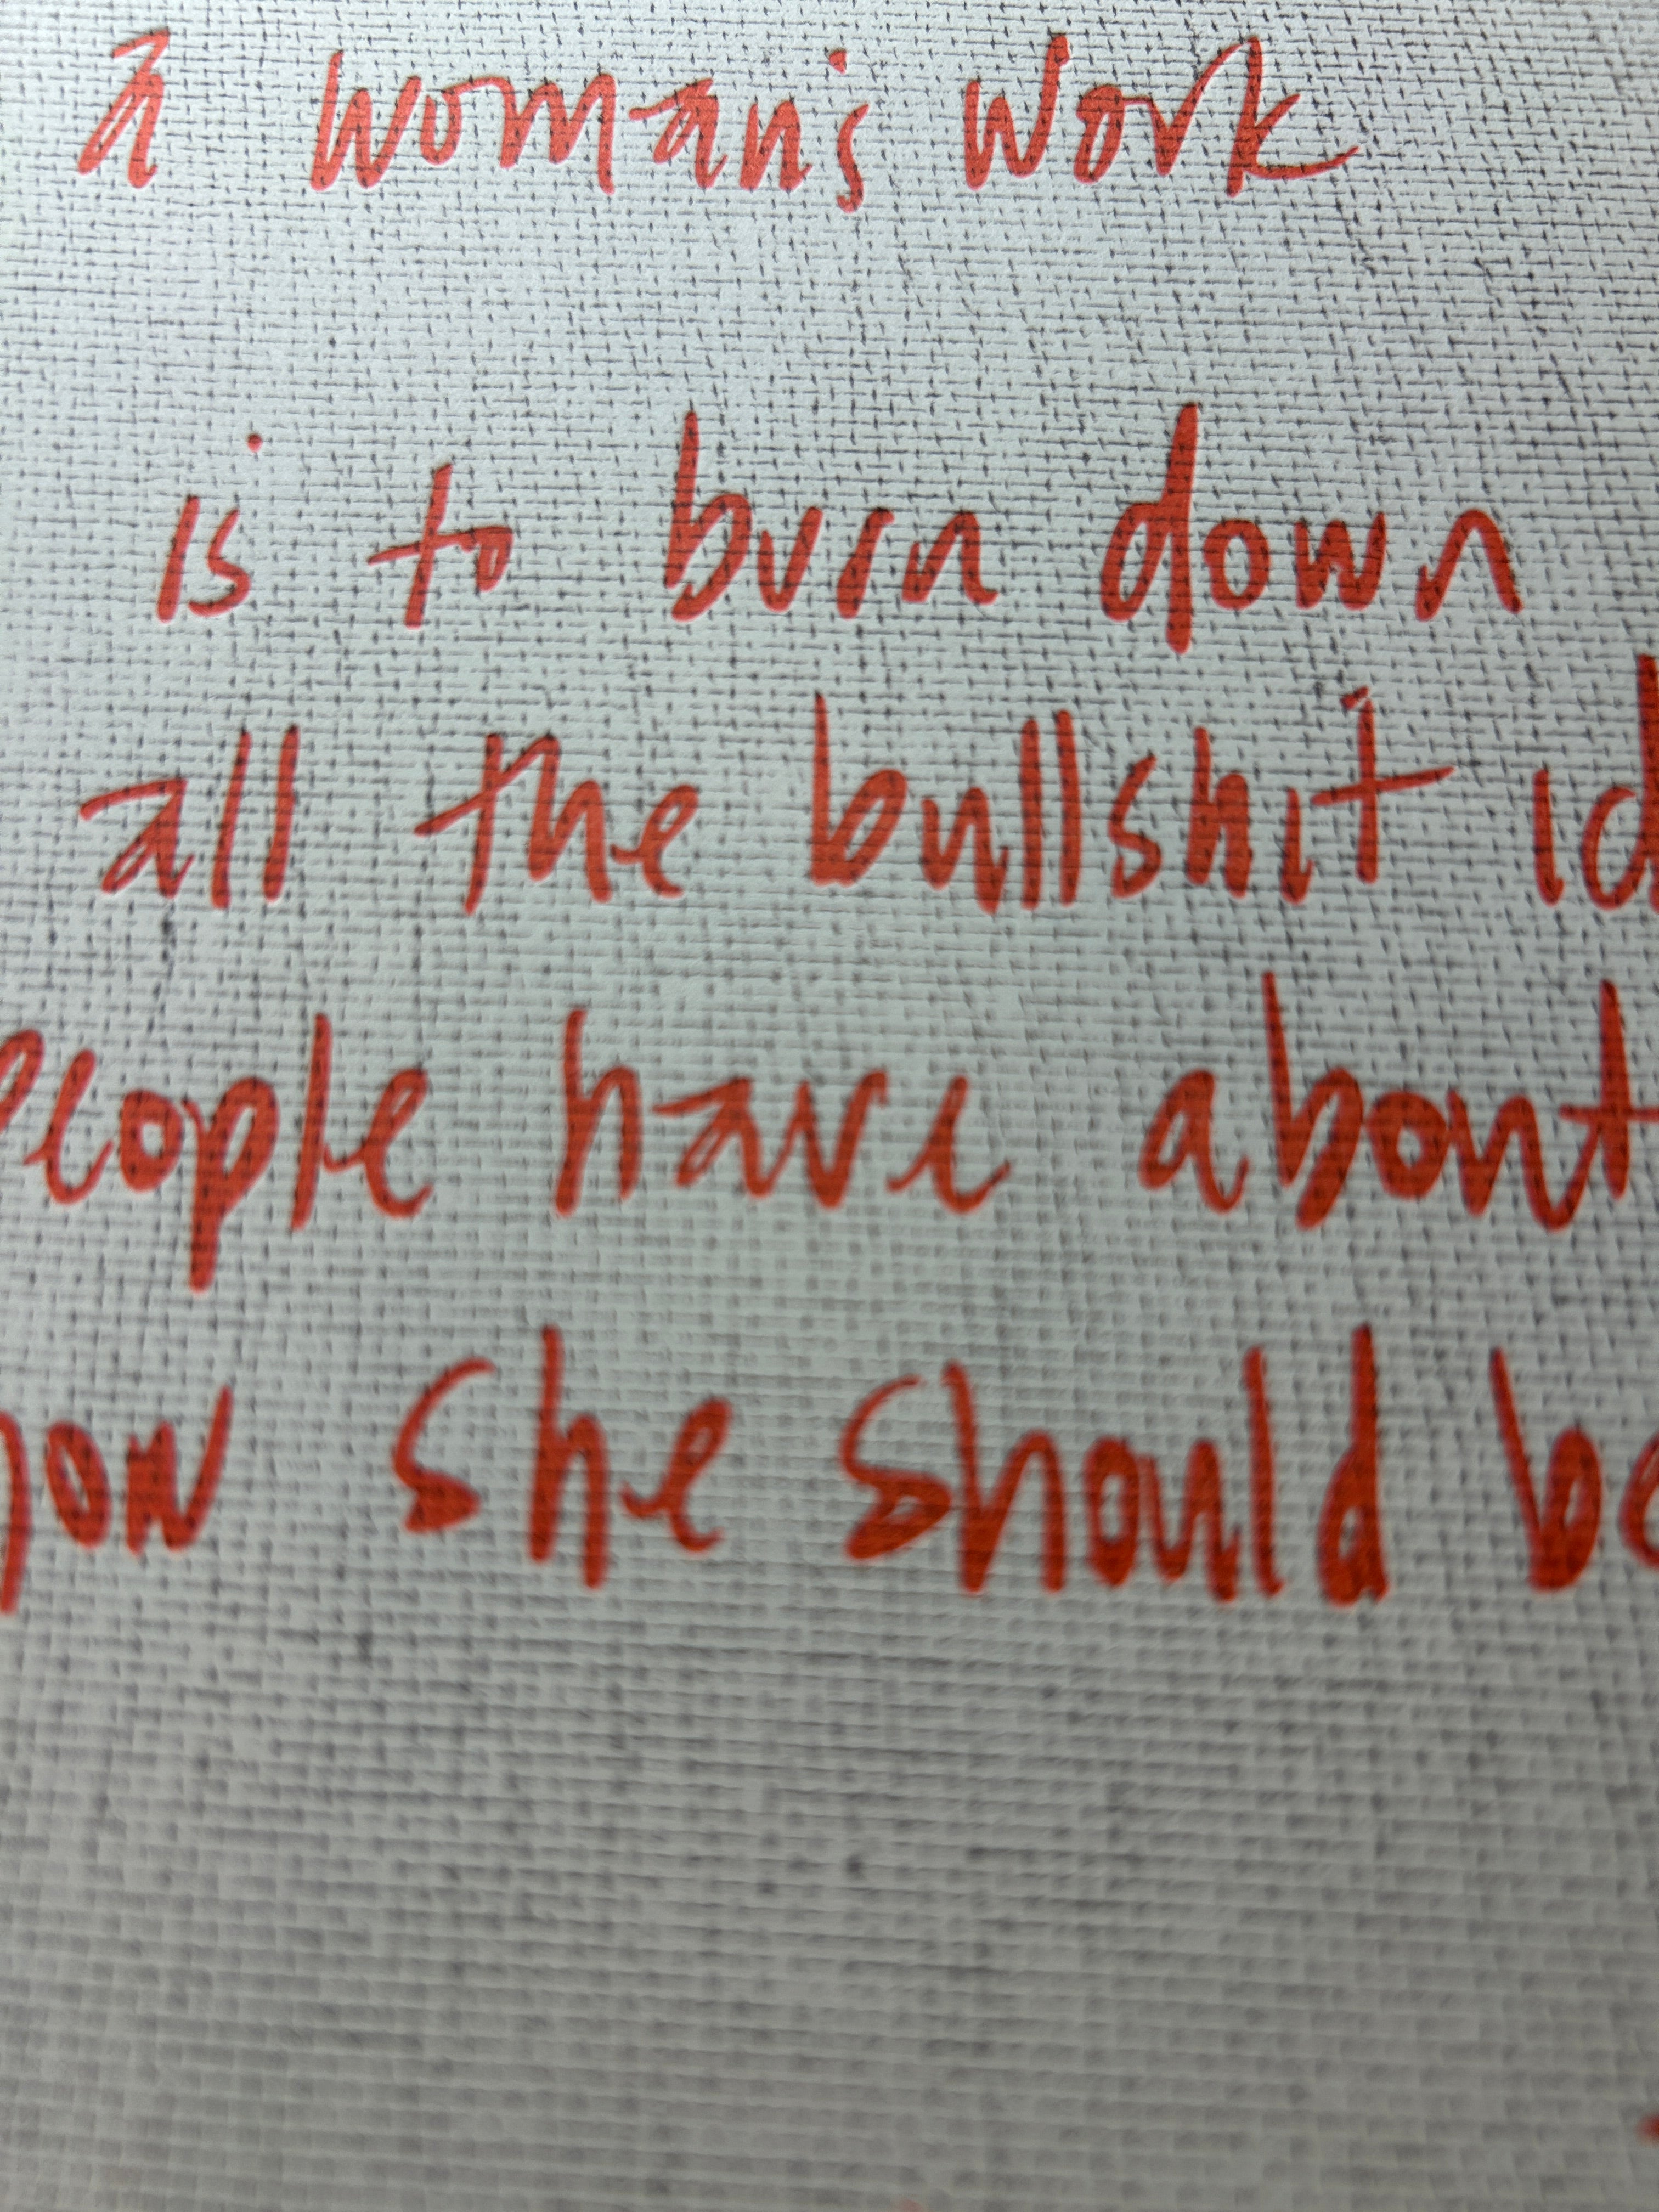 a woman's work
is to burn down
all the bullshit
people have about
how she should be